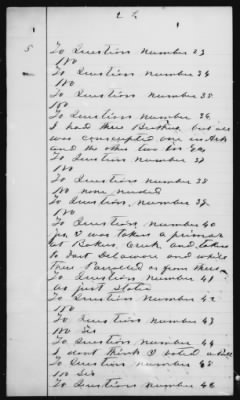 5
To Question Number 33
No
To Question Number 34
No
To Question Number 35
No
To Question Number 36
I had three Brothers but all
was conscripted one in Ark
and the other two in Ga
To Question Number 37
No
To Question Number 38
No none needed
To Question Number 39
No
To Question Number 40
yes I was taken a prisoner
at Bakers Creek and taken
to Fort Delaware and while
Paroled from there
To Question Number 41
as just stated
To Question Number 42
No
To Question Number 43
No Sir
To Question Number 44
I dont think I voted
To Question Number 45
No Sir
To Question Number 46